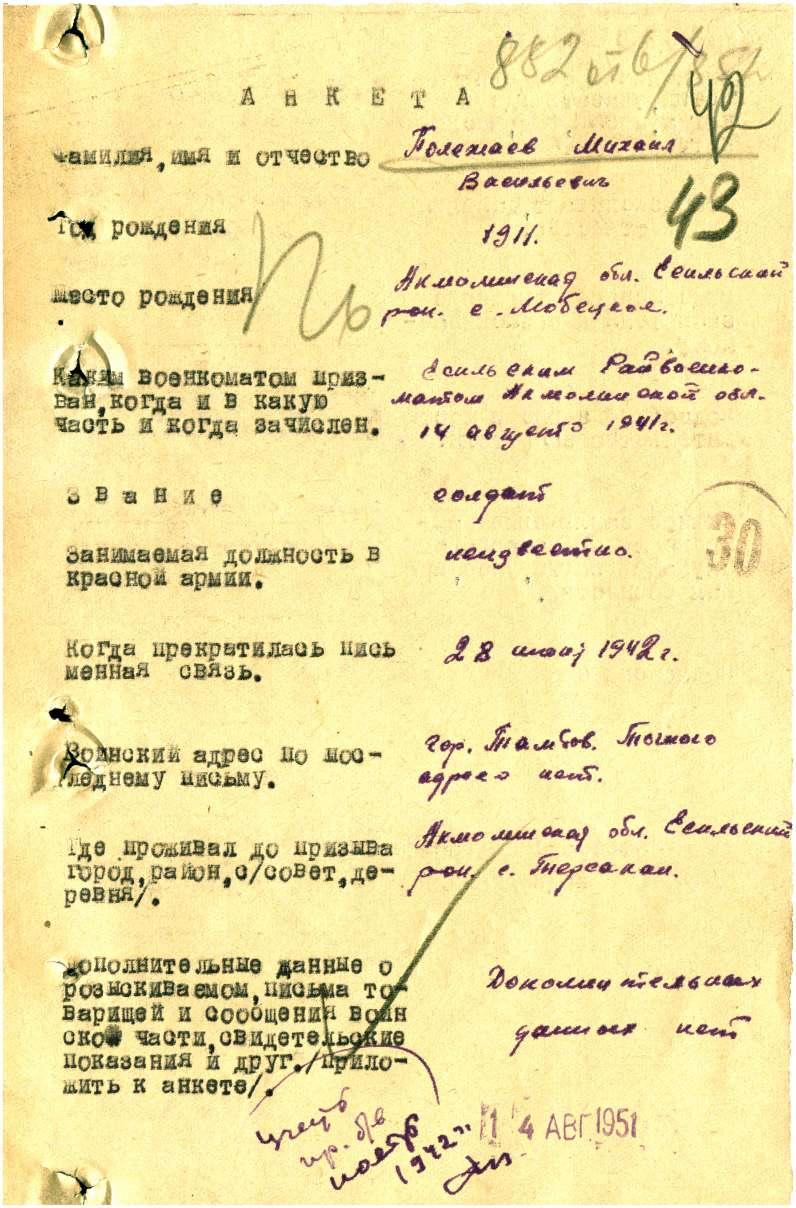 882
42
АНКЕТА
Фамилия, имя и отчество Полежаев Михаил
Васильевич
43
Год рождения 1911.
Место рождения Акмолинская обл. Есильский
рон. с.
Каким военкоматом приз-
ван, когда и в какую
часть и когда зачислен.
Есильским Райвоенко-
матом Акмолинской обл.
14 августа 1941г.
Звание солдат
30
Занимаемая должность в
красной армии.
неизвестно.
Когда прекратилась пись
менная связь.
28 1942г.
Воинский адрес по пос-
леднему письму.
гор. Тамбов. Точного
адреса нет.
Где проживал до призыва
город, район, с/совет, де-
ревня/.
Акмолинская обл. Есильский
рон. с. Терсакан.
Дополнительные данные о
розыскиваемом, письма то-
варищей и сообщения воин
ской части, свидетельские
показания и друг./прило-
жить к анкете/.
Дополнительных
данных нет
учесть
пр. б/в
1942г.
14 АВГ 1951